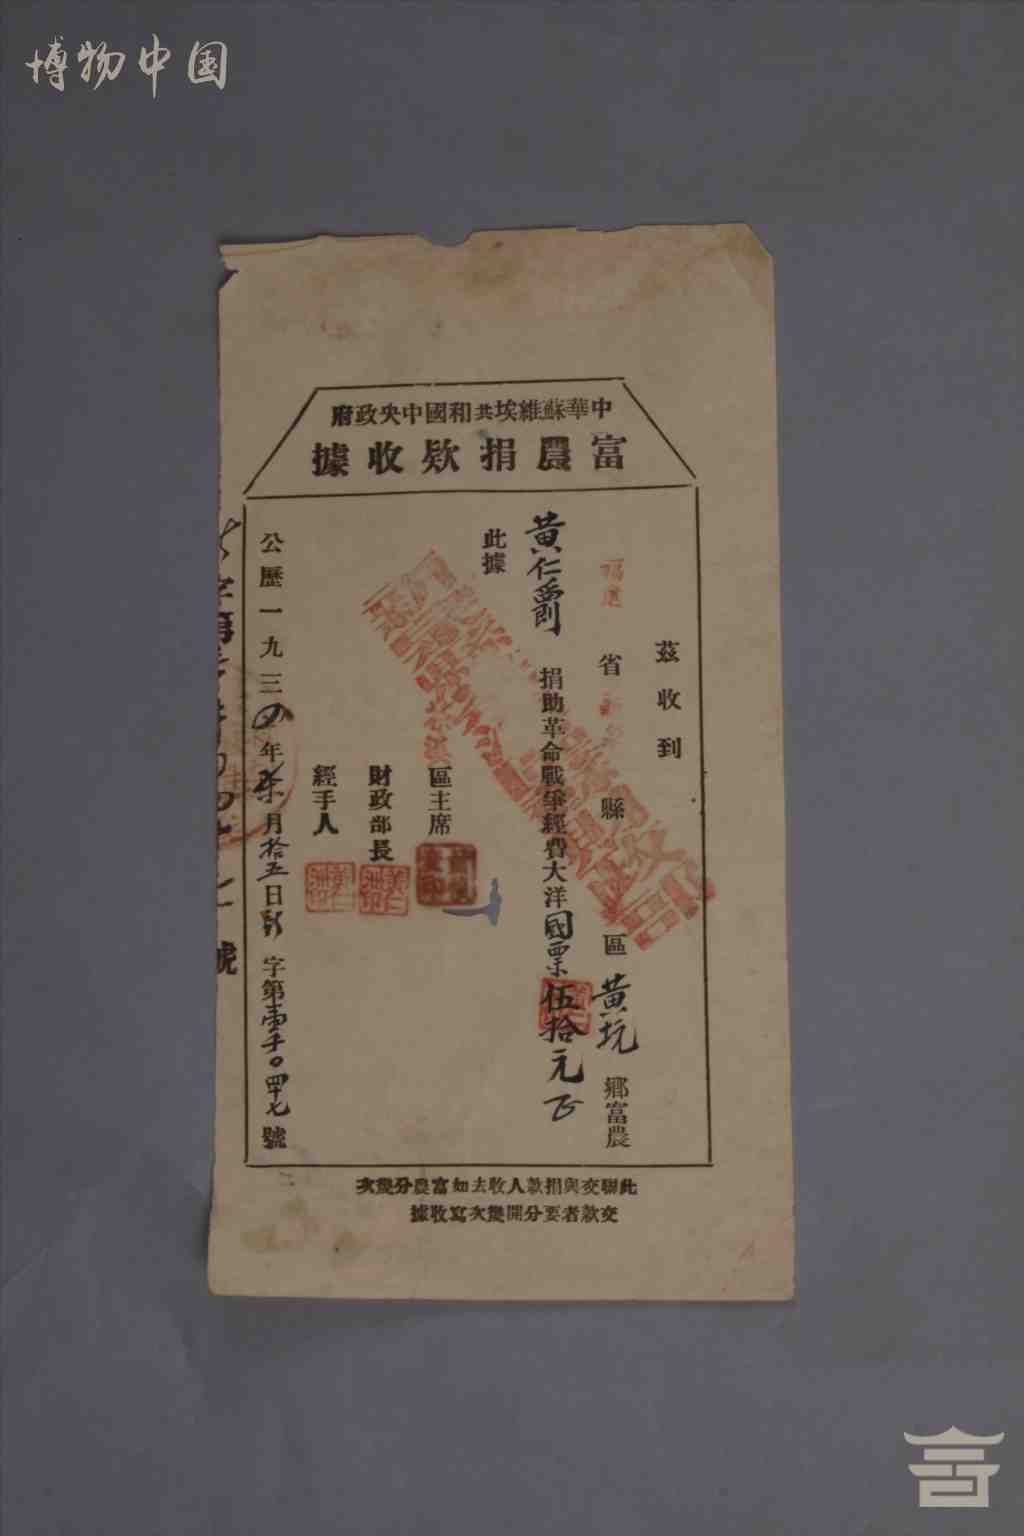 博物中国
中華蘇維埃共和國中央政府
富農捐欵收據
茲收到
福建省新泉縣區黃坑鄉富農
黃仁爵捐助革命戰爭經費大洋國票伍拾元正
此據
區主席
財政部長
經手人
公歷一九三四年柒月拾五日新字第壹千〇四十七號
號
此聯交與捐款人收去如富農分幾次
交款者要分開幾次寫收據